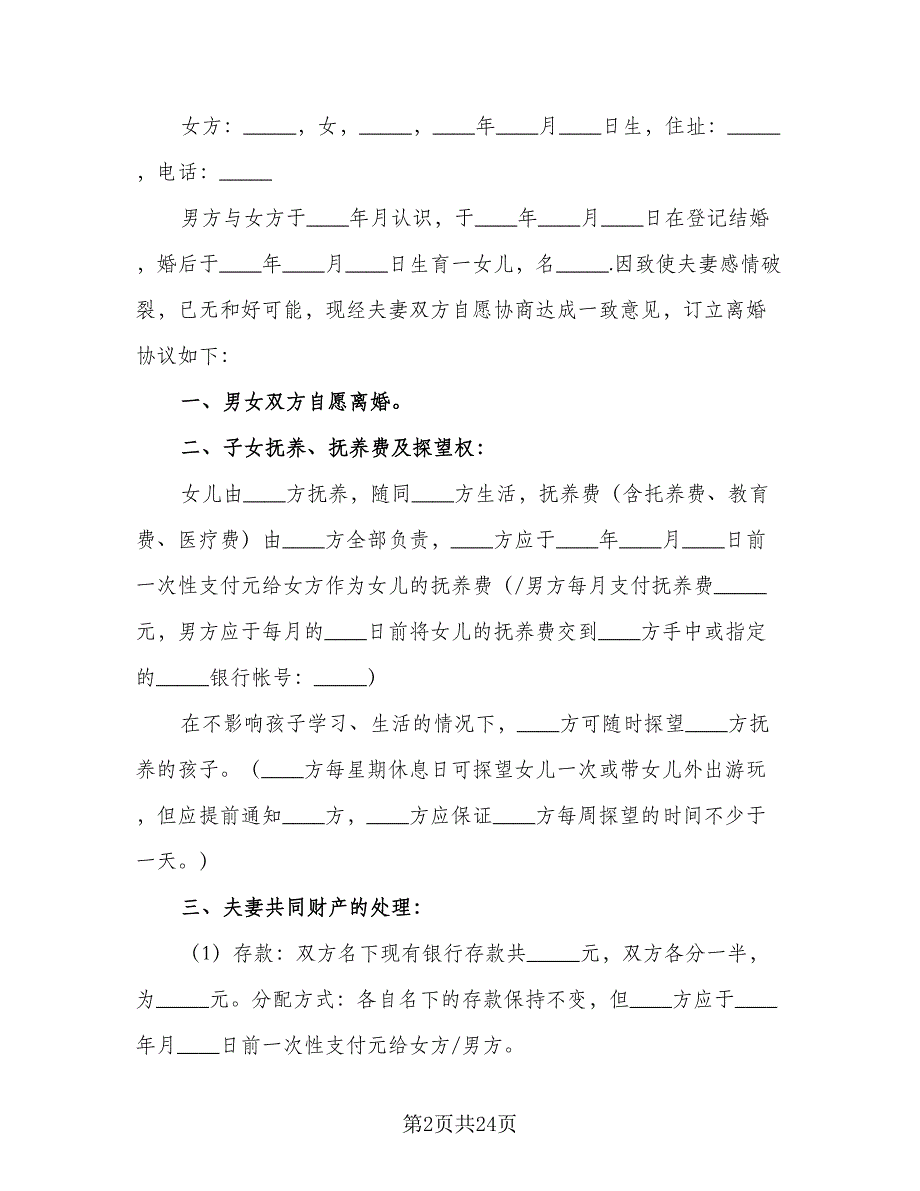 女方：_____，女，_____，____年____月____日生，住址：_____
，电话：_____
男方与女方于____年月认识，于____年____月____日在登记结婚
，婚后于____年____月____日生育一女儿，名_____.因致使夫妻感情破
裂，已无和好可能，现经夫妻双方自愿协商达成一致意见，订立离婚
协议如下：
一、男女双方自愿离婚。
二、子女抚养、抚养费及探望权：
女儿由____方抚养，随同____方生活，抚养费（含托养费、教育
费、医疗费）由____方全部负责，____方应于____年____月____日前
一次性支付元给女方作为女儿的抚养费（/男方每月支付抚养费_____
元，男方应于每月的____日前将女儿的抚养费交到____方手中或指定
的_____银行帐号：_____）
在不影响孩子学习、生活的情况下，____方可随时探望____方抚
养的孩子。（____方每星期休息日可探望女儿一次或带女儿外出游玩
，但应提前通知____方，____方应保证____方每周探望的时间不少于
一天。）
三、夫妻共同财产的处理：
（1）存款：双方名下现有银行存款共_____元，双方各分一半，
为_____元。分配方式：各自名下的存款保持不变，但____方应于____
年月____日前一次性支付元给女方/男方。
第2页共24页